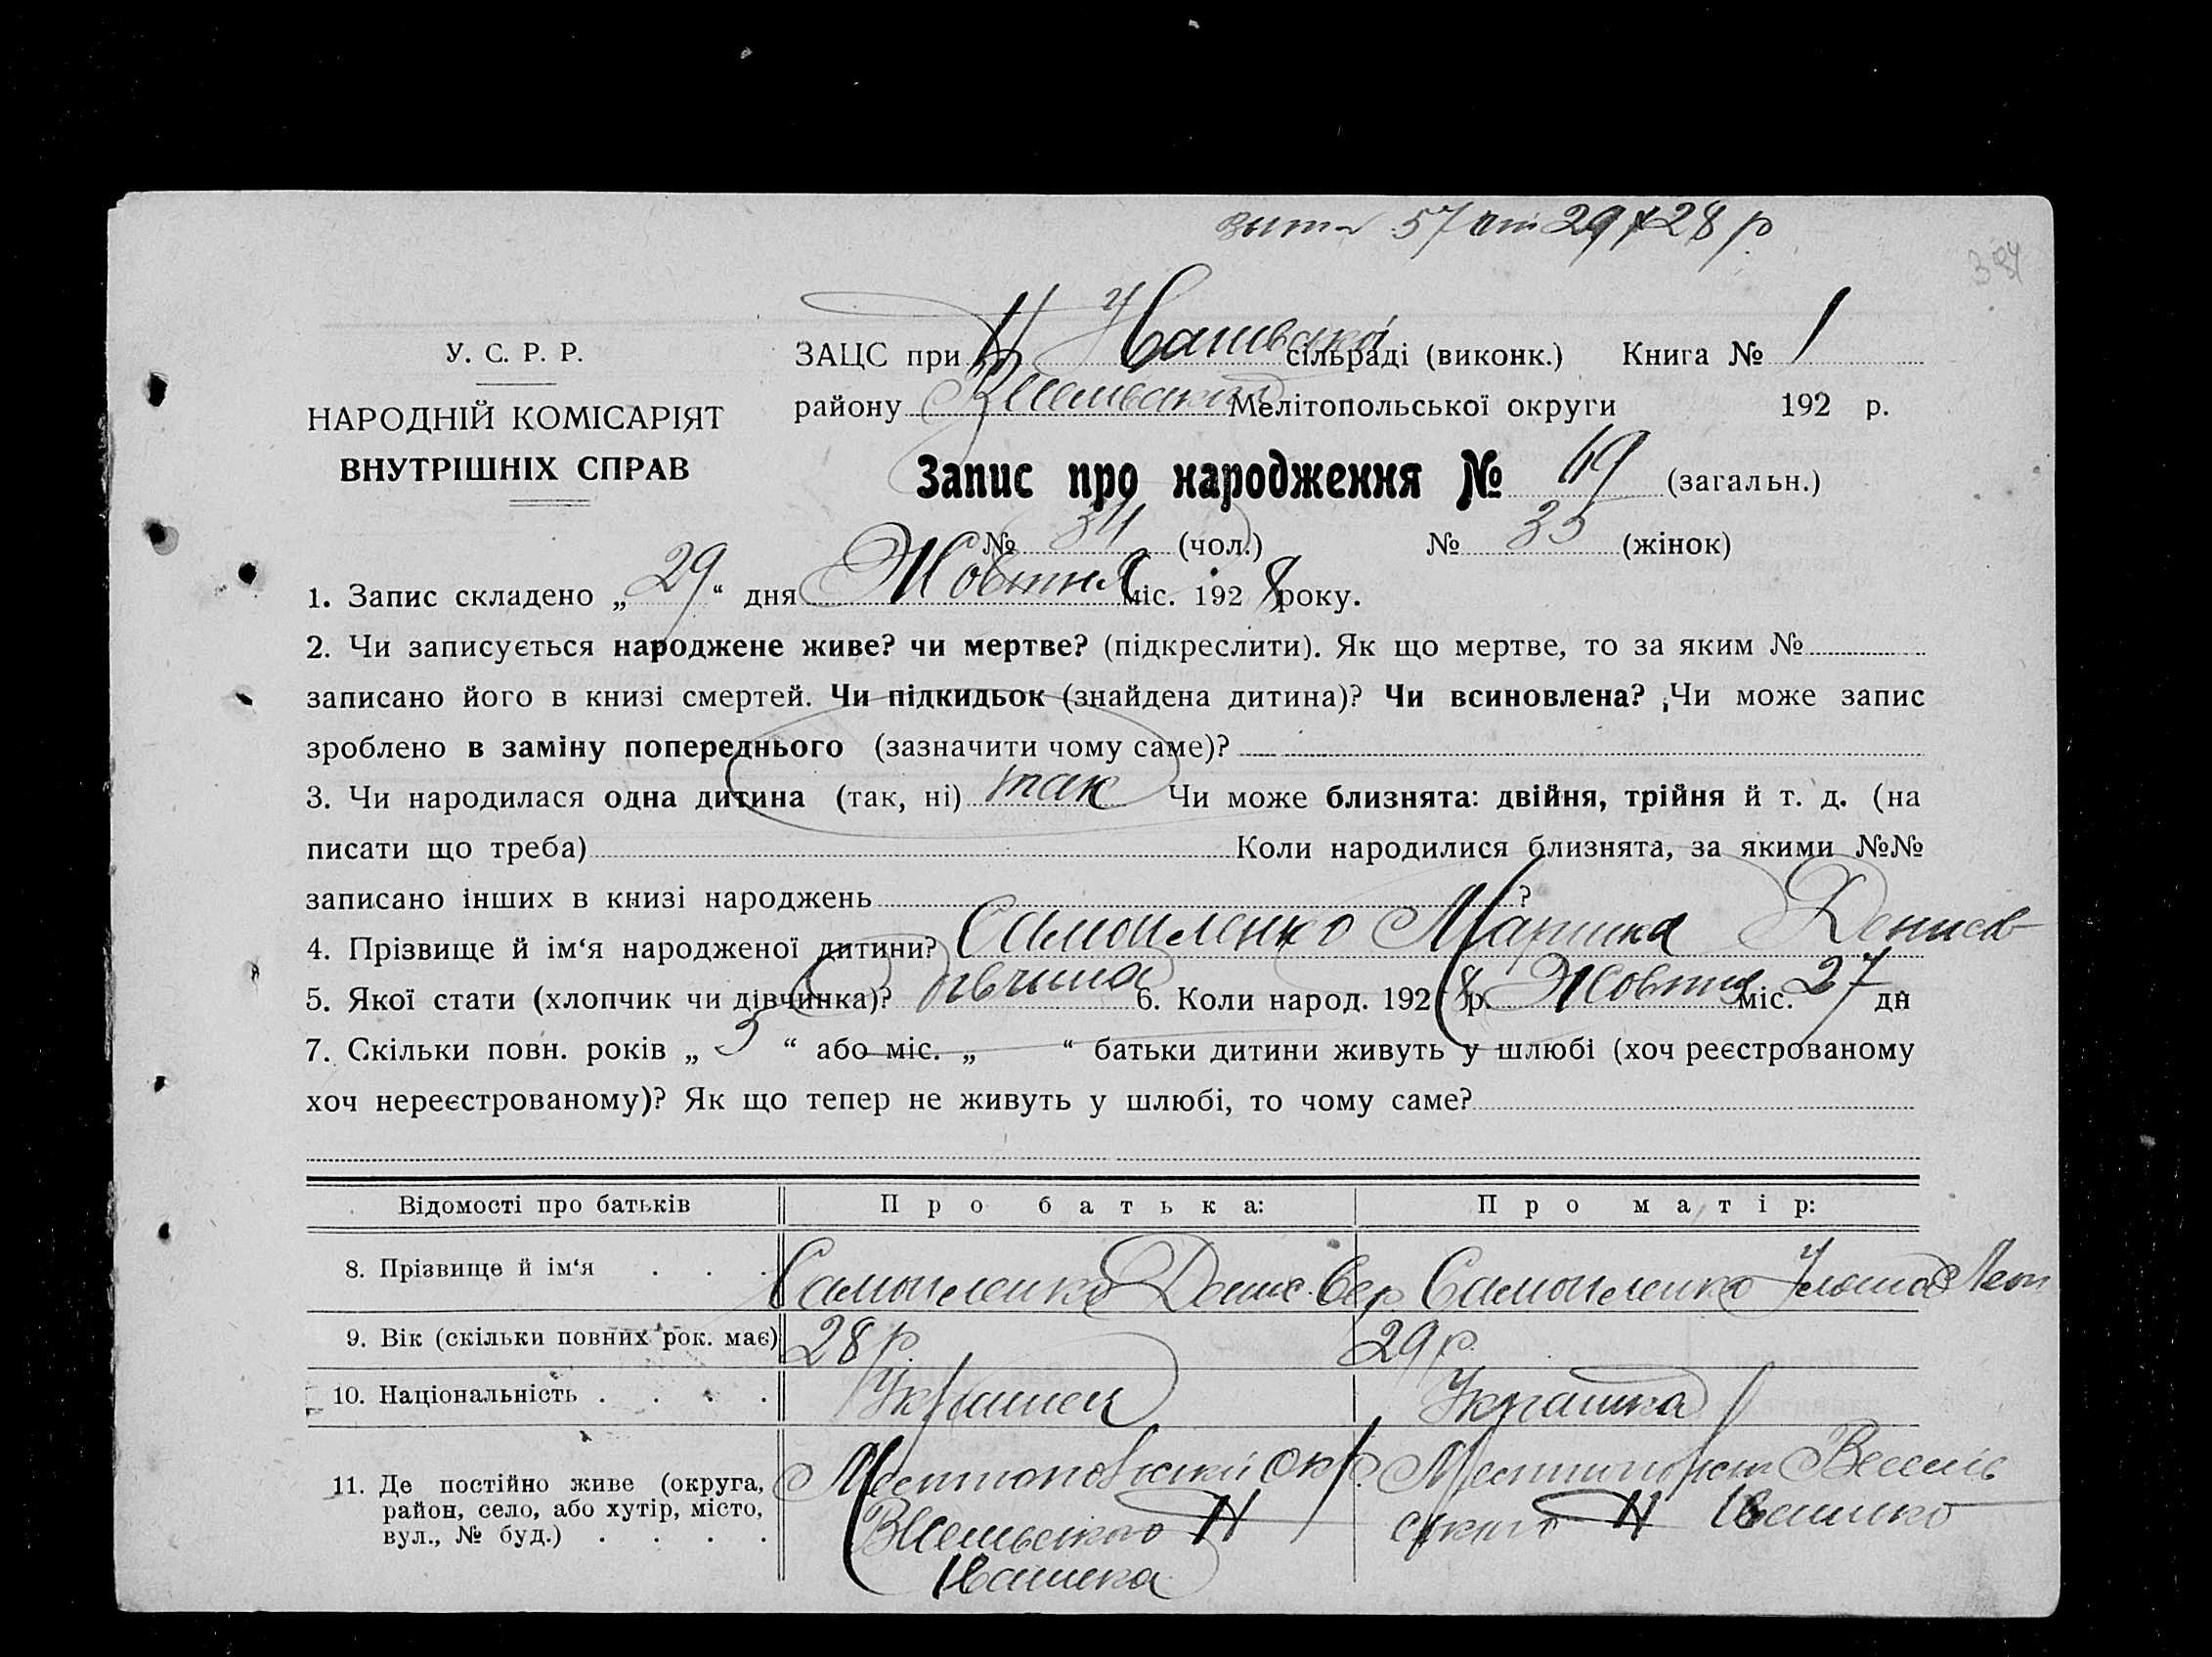 57 29 X 28 р
У. С. Р. Р. ЗАЦС при сільраді (виконк.) Книга № 1
району Мелітопольської округи 192 р.
НАРОДНІЙ КОМІСАРІЯТ
ВНУТРІШНІХ СПРАВ
Запис про народження № 69 (загальн.)
№ 34 (чол.) № 35 (жінок)
1. Запис складено „29“ дня Жовтня міс. 1928 року.
2. Чи записується народжене живе? чи мертве? (підкреслити). Як що мертве, то за яким №
записано його в книзі смертей. Чи підкидьок (знайдена дитина)? Чи всиновлена? Чи може запис
зроблено в заміну попереднього (зазначити чому саме)?
3. Чи народилася одна дитина (так, ні) так Чи може близнята: двійня, трійня й т. д. (на
писати що треба) Коли народилися близнята, за якими №№
записано інших в книзі народжень ?
4. Прізвище й ім‘я народженої дитини? Самойленко Марина Денисов
5. Якої стати (хлопчик чи дівчинка)? дівчина 6. Коли народ. 1928 р. Жовтня міс. 27 дн
7. Скільки повн. років „ 3 “ або міс. „ “ батьки дитини живуть у шлюбі (хоч реєстрованому
хоч нереєстрованому)? Як що тепер не живуть у шлюбі, то чому саме?
Відомості про батьків Про батька: Про матір:
8. Прізвище й ім‘я . . . Самойленко Денис Самойленко
9. Вік (скільки повних рок. має) 28 р. 29 р.
10. Національність . . . . Украинец Украинка
11. Де постійно живе (округа,
район, село, або хутір, місто,
вул., № буд.) . . . .
Н
Н